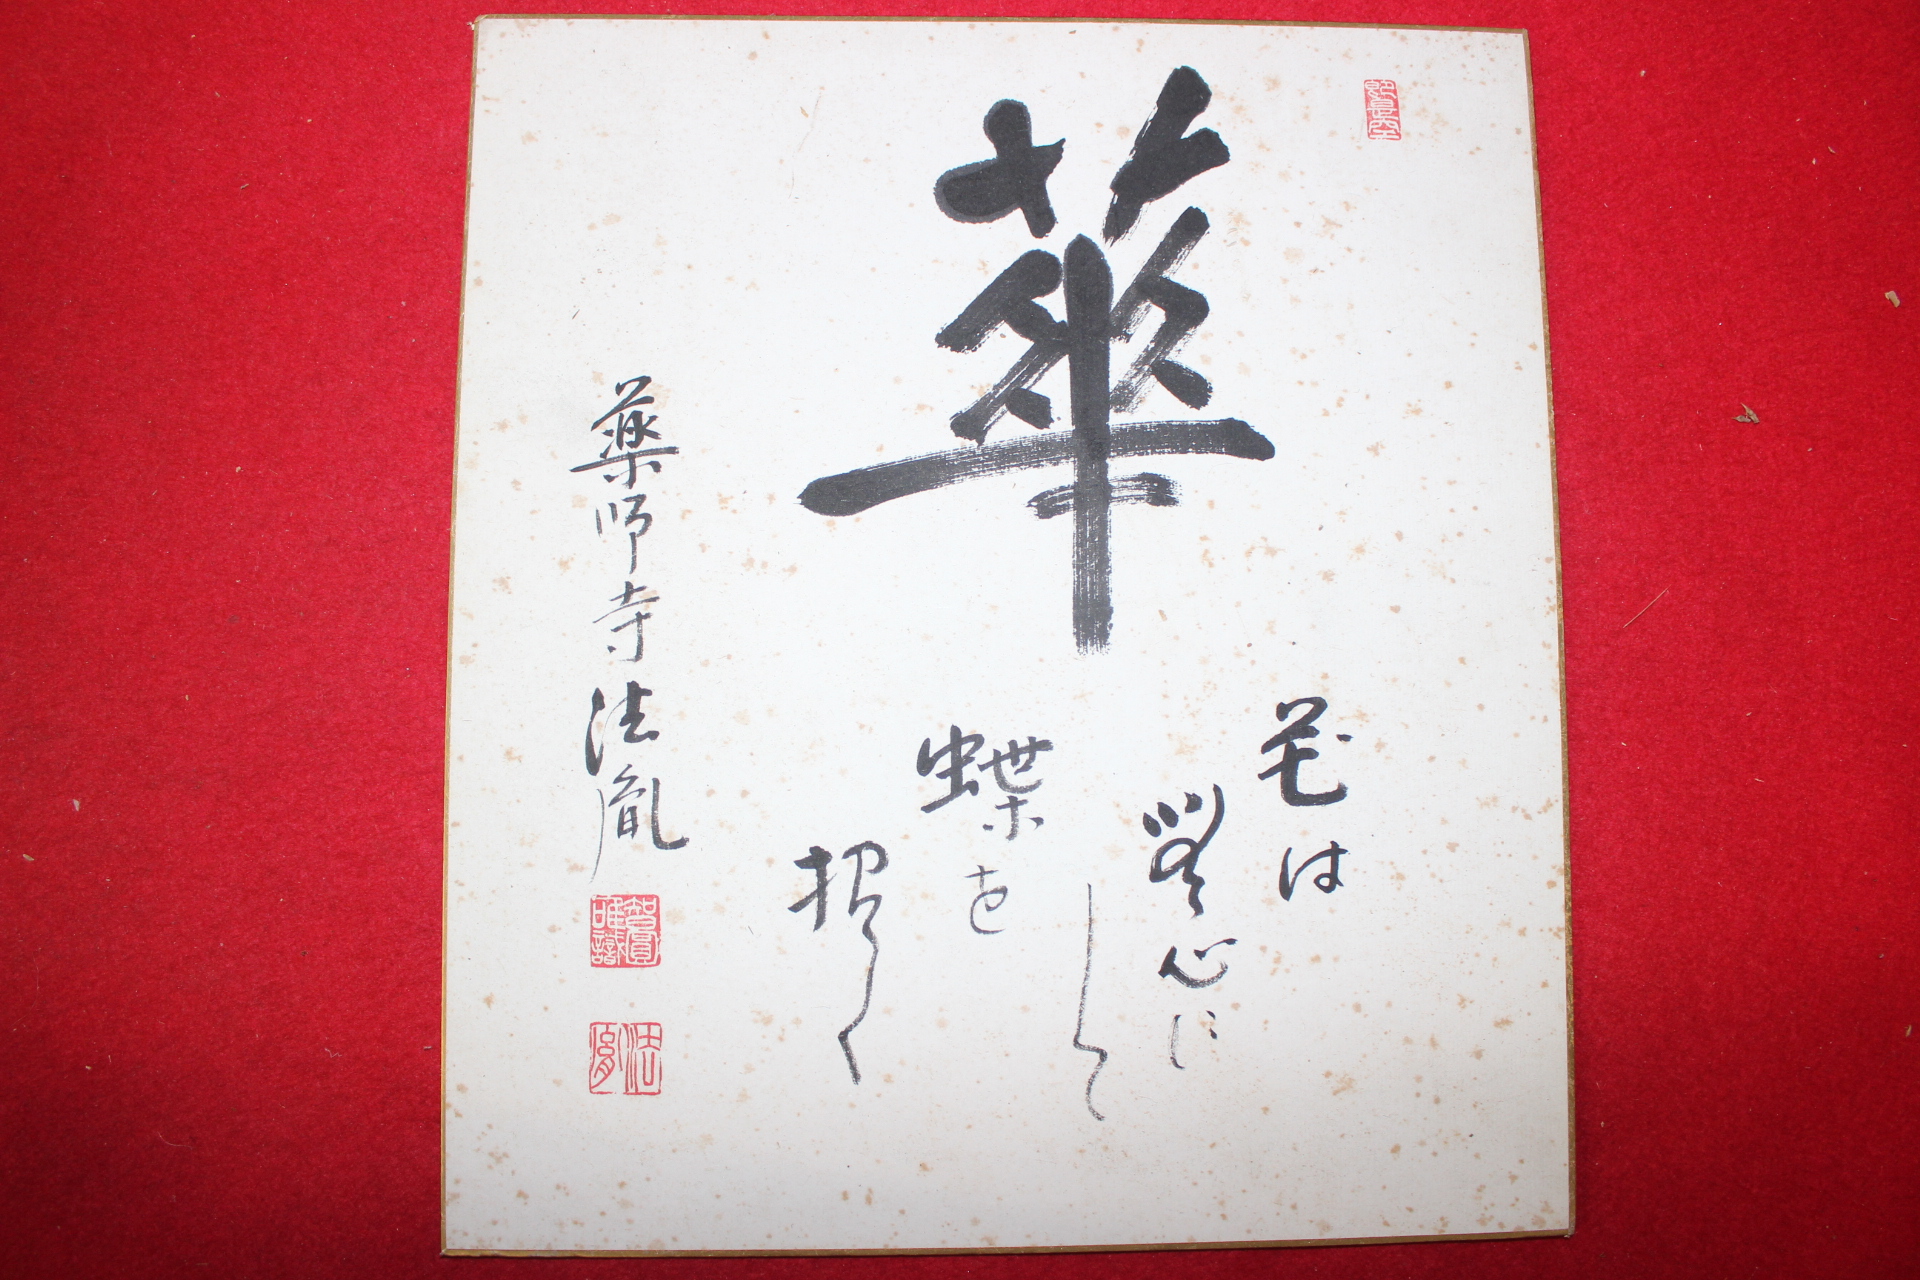 華
花は
無心に
して
蝶を
招く
薬師寺法胤
法胤